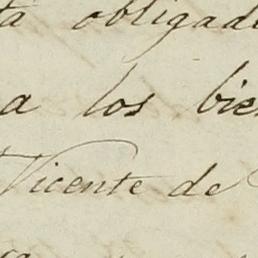 ta obligad
a los bie
Vicente de